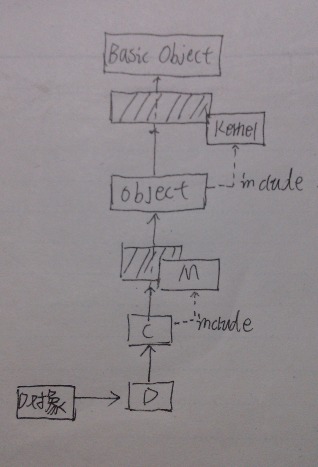 Basic Object
Kernel
object
include
M
C
include
D对象
D